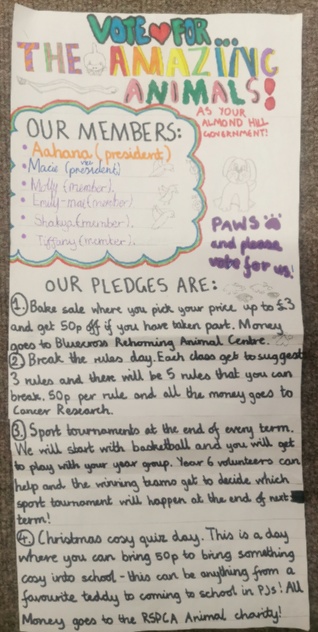 VOTE FOR...
THE AMAZING
ANIMALS!
AS YOUR
ALMOND HILL
GOVERNMENT!
OUR MEMBERS:
• Aahana (president)
• Macie (vice president)
• Molly (member).
• Emily-mai (member)
• Shakya (member).
• Tiffany (member).
PAWS
and please
vote for us!
OUR PLEDGES ARE:
1. Bake sale where you pick your price up to £3
and get 50p off if you have taken part. Money
goes to Bluecross Rehoming Animal Centre.
2. Break the rules day. Each class get to suggest
3 rules and there will be 5 rules that you can
break. 50p per rule and all the money goes to
Cancer Research.
3. Sport tournaments at the end of every term.
We will start with basketball and you will get
to play with your year group. Year 6 volunteers can
help and the winning teams get to decide which
sport tournament will happen at the end of next
term!
4. Christmas cosy quiz day. This is a day
where you can bring 50p to bring something
cosy into school - this can be anything from a
favourite teddy to coming to school in PJs! All
Money goes to the RSPCA Animal charity!